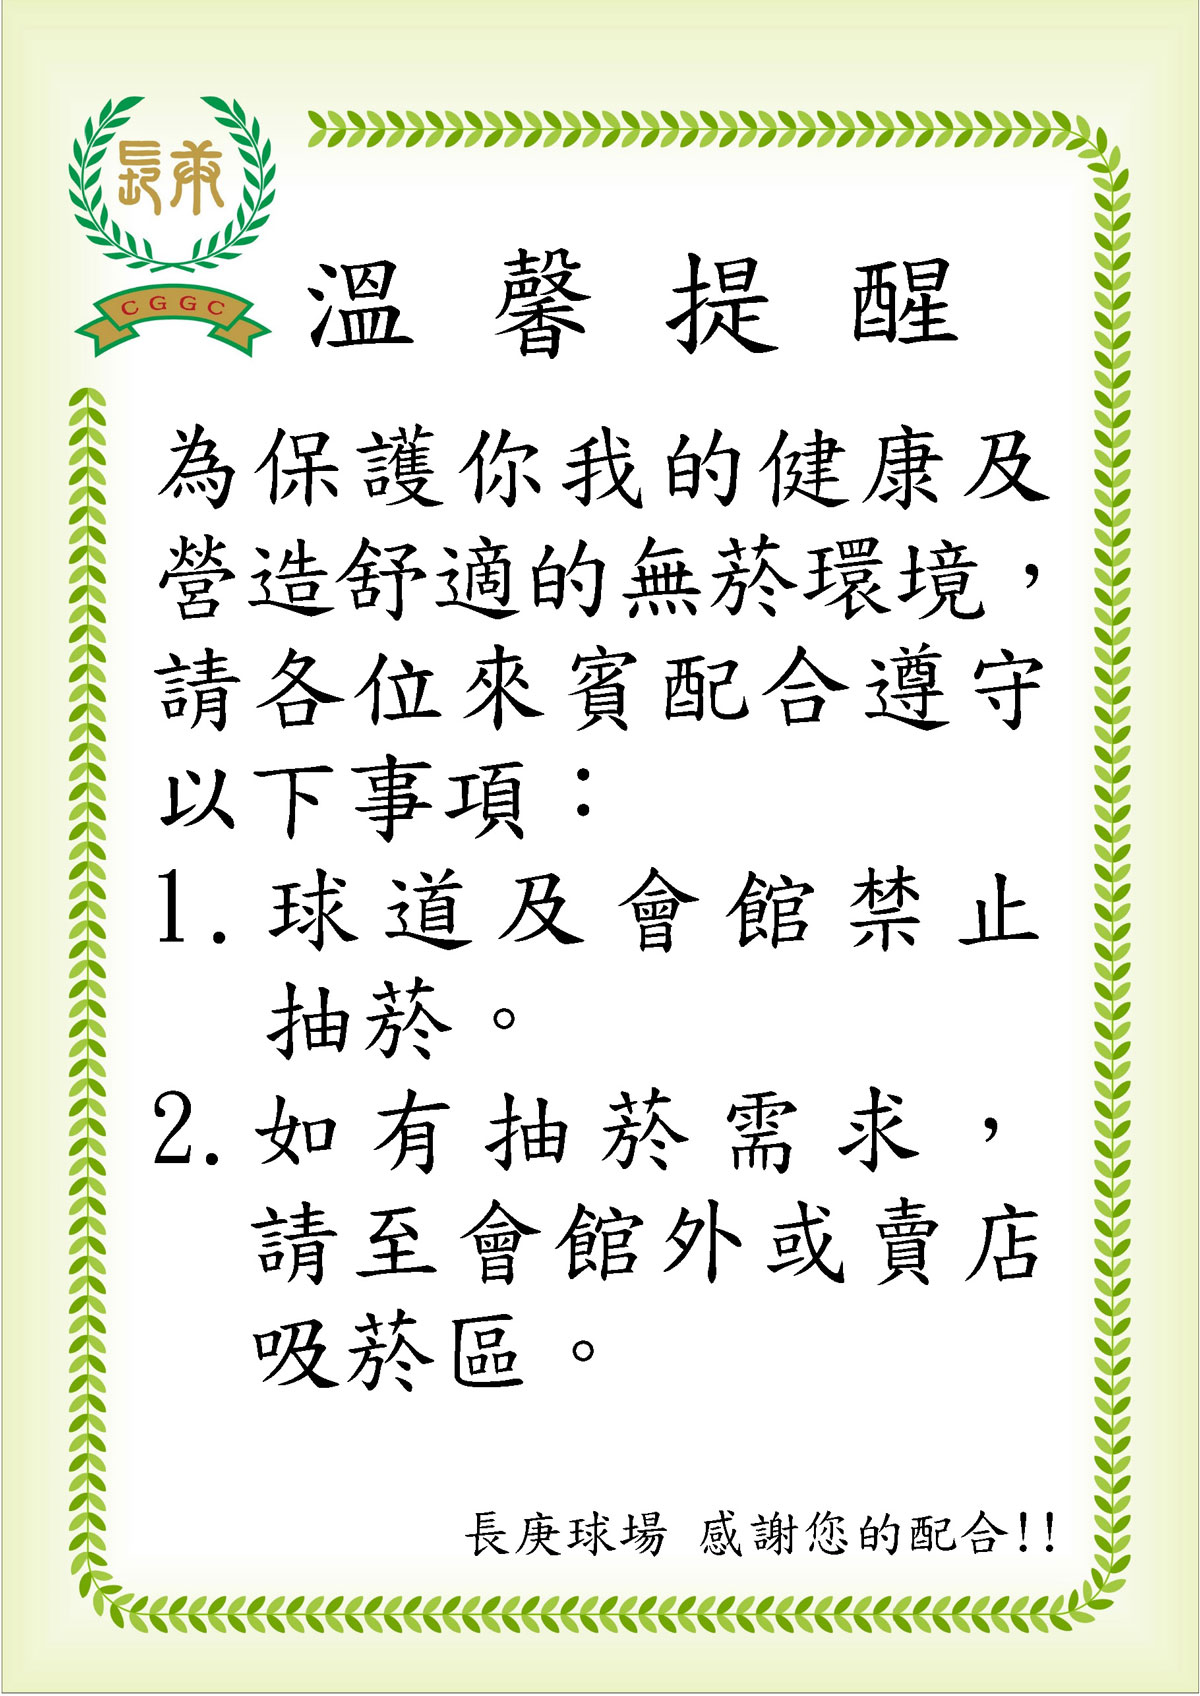 長庚
CGGC
溫馨提醒
為保護你我的健康及
營造舒適的無菸環境，
請各位來賓配合遵守
以下事項：
1.球道及會館禁止
抽菸。
2.如有抽菸需求，
請至會館外或賣店
吸菸區。
長庚球場 感謝您的配合!!